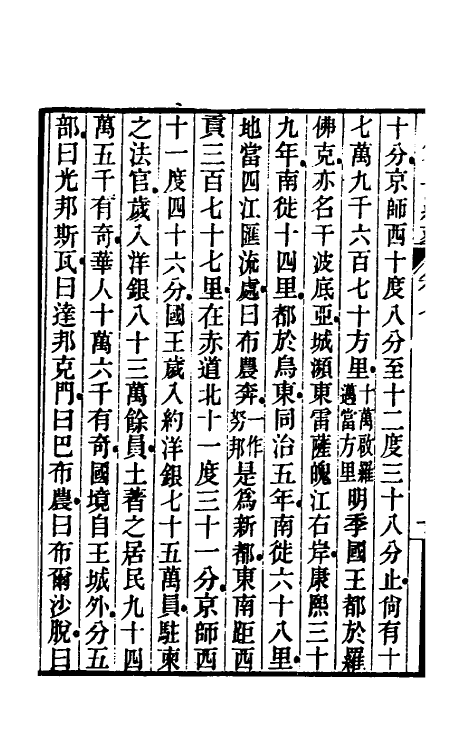 十分京師西十度八分至十二度三十八分止尙有十
七萬九千六百七十方里十萬啟羅邁當方里明季國王都於羅
佛克亦名干波底亞城瀕東雷薩媿江右岸康熙三十
九年南徙十四里都於烏東同治五年南徙六十八里
地當四江匯流處曰布農奔一作努邦是爲新都東南距西
貢三百七十七里在赤道北十一度三十一分京師西
十一度四十六分國王歲入約洋銀七十五萬員駐柬
之法官歲入洋銀八十三萬餘員土著之居民九十四
萬五千有奇華人十萬六千有奇國境自王城外分五
部曰光邦斯瓦曰達邦克門曰巴布農曰布爾沙脫曰